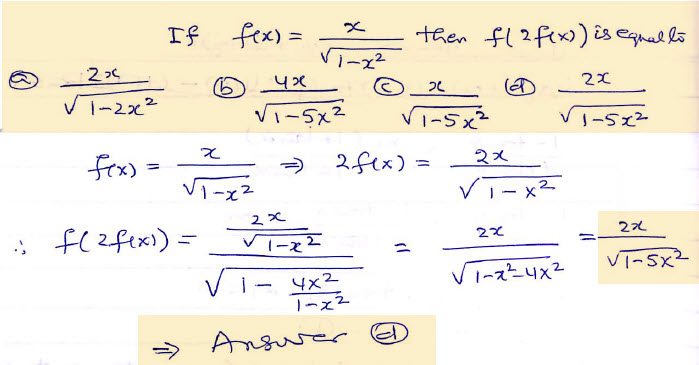 If f(x) = x/√(1-x²) then f(2f(x)) is equal to
ⓐ 2x/√(1-2x²) ⓑ 4x/√(1-5x²) ⓒ x/√(1-5x²) ⓓ 2x/√(1-5x²)
f(x) = x/√(1-x²) ⇒ 2f(x) = 2x/√(1-x²)
∴ f(2f(x)) = (2x/√(1-x²))/√(1 - 4x²/(1-x²)) = 2x/√(1-x²-4x²) = 2x/√(1-5x²)
⇒ Answer ⓓ